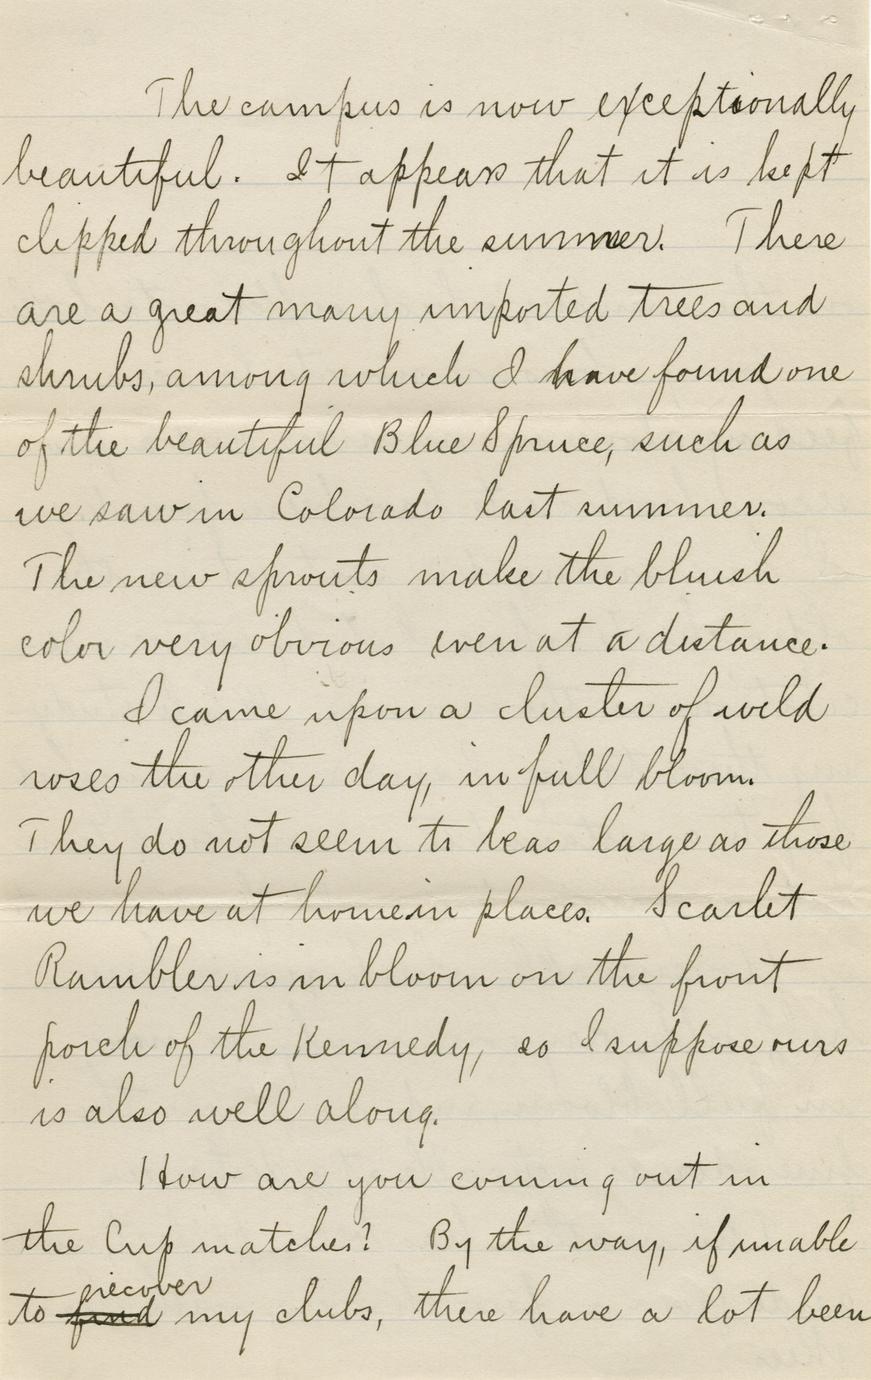 The campus is now exceptionally
beautiful. It appears that it is kept
clipped throughout the summer. There
are a great many imported trees and
shrubs, among which I have found one
of the beautiful Blue Spruce, such as
we saw in Colorado last summer.
The new sprouts make the bluish
color very obvious even at a distance.
I came upon a cluster of wild
roses the other day, in full bloom.
They do not seem to be as large as those
we have at home in places. Scarlet
Rambler is in bloom on the front
porch of the Kennedy, so I suppose ours
is also well along.
How are you coming out in
the Cup matches? By the way, if unable
recover
to find my clubs, there have a lot been